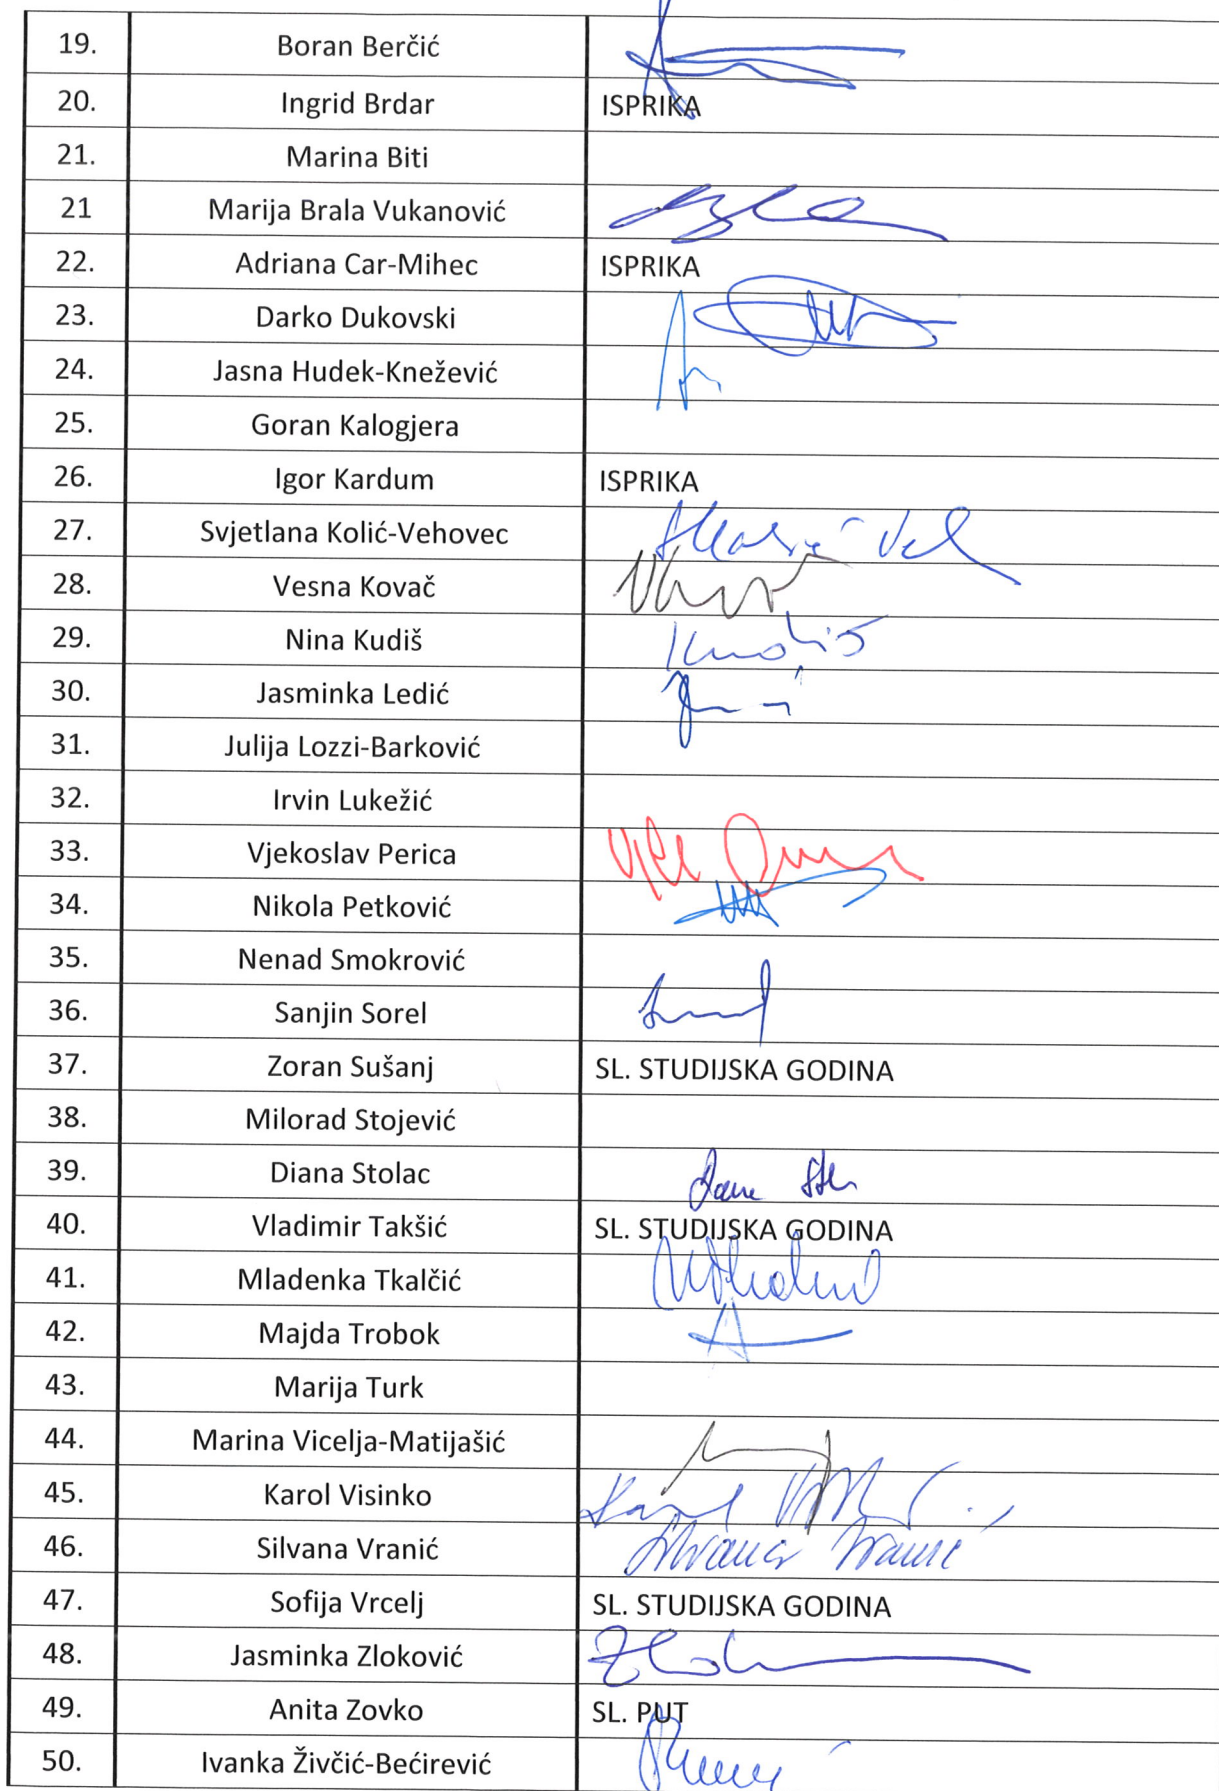 19. Boran Berčić
20. Ingrid Brdar ISPRIKA
21. Marina Biti
21 Marija Brala Vukanović
22. Adriana Car-Mihec ISPRIKA
23. Darko Dukovski
24. Jasna Hudek-Knežević
25. Goran Kalogjera
26. Igor Kardum ISPRIKA
27. Svjetlana Kolić-Vehovec
28. Vesna Kovač
29. Nina Kudiš
30. Jasminka Ledić
31. Julija Lozzi-Barković
32. Irvin Lukežić
33. Vjekoslav Perica
34. Nikola Petković
35. Nenad Smokrović
36. Sanjin Sorel
37. Zoran Sušanj SL. STUDIJSKA GODINA
38. Milorad Stojević
39. Diana Stolac
40. Vladimir Takšić SL. STUDIJSKA GODINA
41. Mladenka Tkalčić
42. Majda Trobok
43. Marija Turk
44. Marina Vicelja-Matijašić
45. Karol Visinko
46. Silvana Vranić Silvana Vranić
47. Sofija Vrcelj SL. STUDIJSKA GODINA
48. Jasminka Zloković
49. Anita Zovko SL. PUT
50. Ivanka Živčić-Bećirević